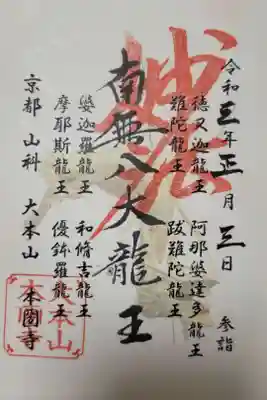 令和三年正月三日 参詣
徳叉迦龍王 阿那婆達多龍王
難陀龍王 跋難陀龍王
妙法
南無八大龍王
娑迦羅龍王 和脩吉龍王
摩耶斯龍王 優鉢羅龍王
京都 山科 大本山 本圀寺
大本山